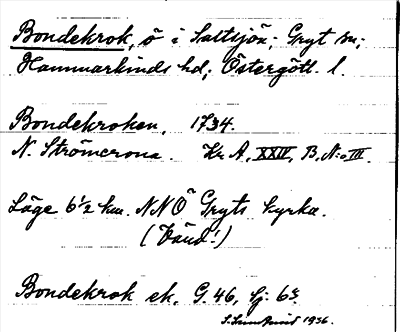 Bondekrok, ö i Saltsjön; Gryt sn;
Hammarkinds hd; Östergötl. l.
Bondekroken, 1734.
N. Strömcrona. Kr. A, XXIV, B, N:o III.
Läge 6½ km. NNÖ Gryts kyrka.
(Vänd!)
Bondekrok ek. G. 46, Sj. 63.
1936.